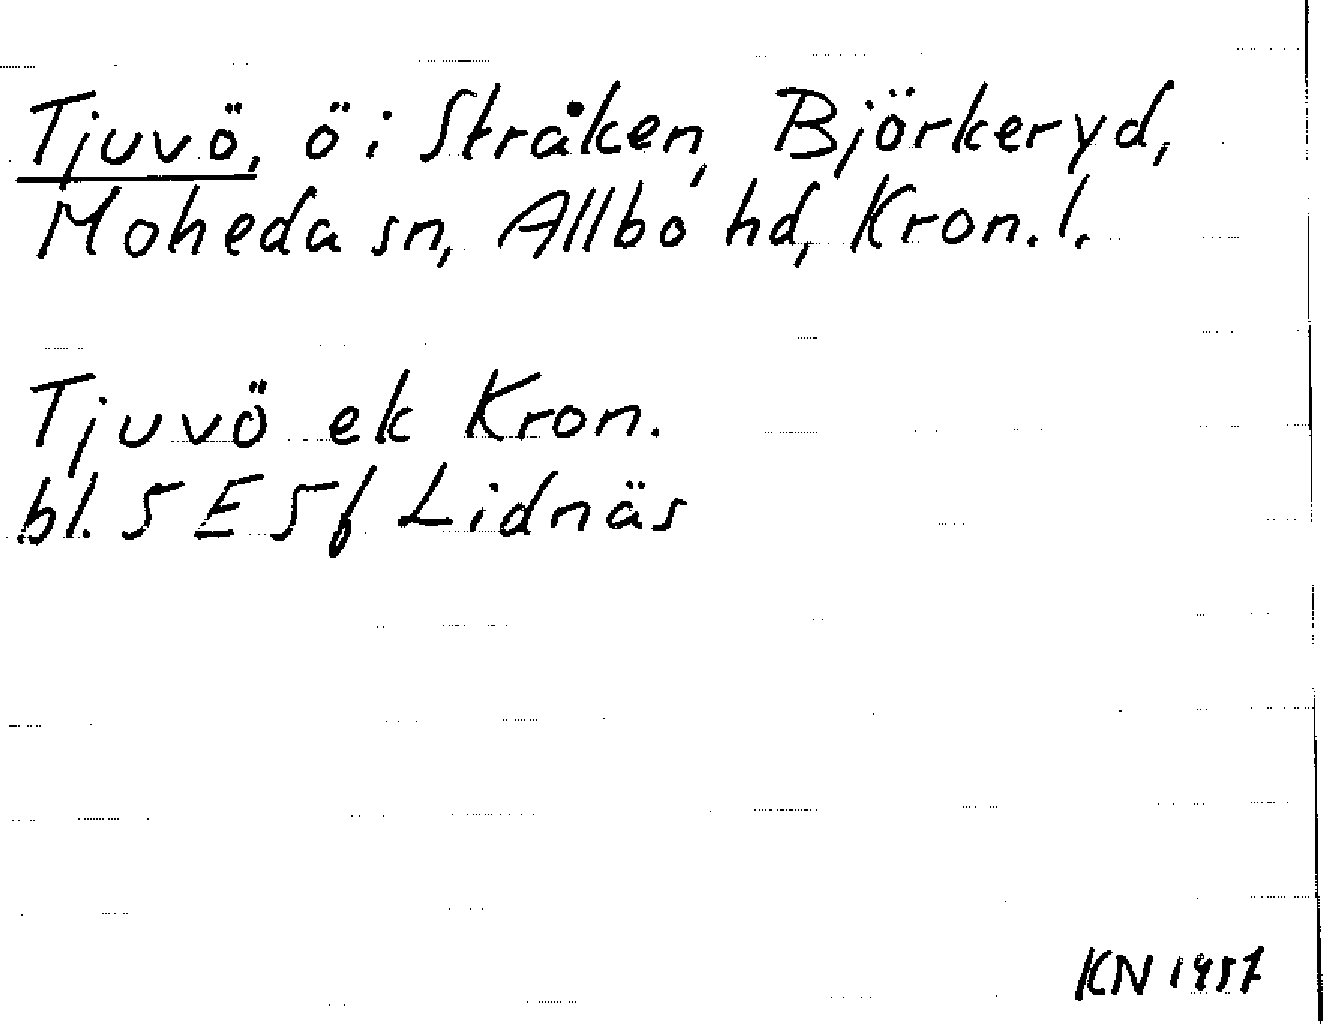 Tjuvö, ö i Stråken, Björkeryd,
Moheda sn, Allbo hd, Kron. l.
Tjuvö ek Kron.
bl. 5 E 5f Lidnäs
KN 1957